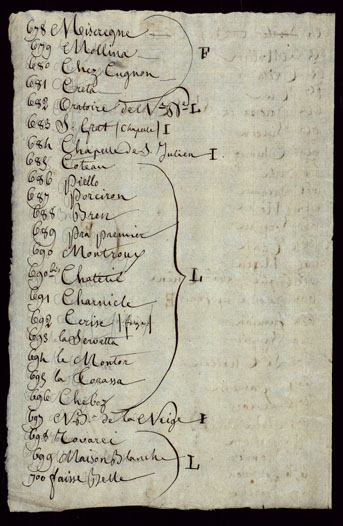 678 Miseregne
679 Mollina F
680 Chez Cugnon
681 Creta
682 Oratoire de N. L
683 St. Crest (Chapelle) I
684 Chapelle de S. Julien I.
685 Coteau
686 Piello
687 Porciron
688 Bren
689 pra premier
690 Montroux
690 bis Chateu L
691 Charnicle
692 Cerise
693 la Servetta
694 le Montor
695 la Cocassa
696 Cheboz
697 N. D. de la Neige I
698 Tovarci
699 Maison Blanche L
700 faisse Belle